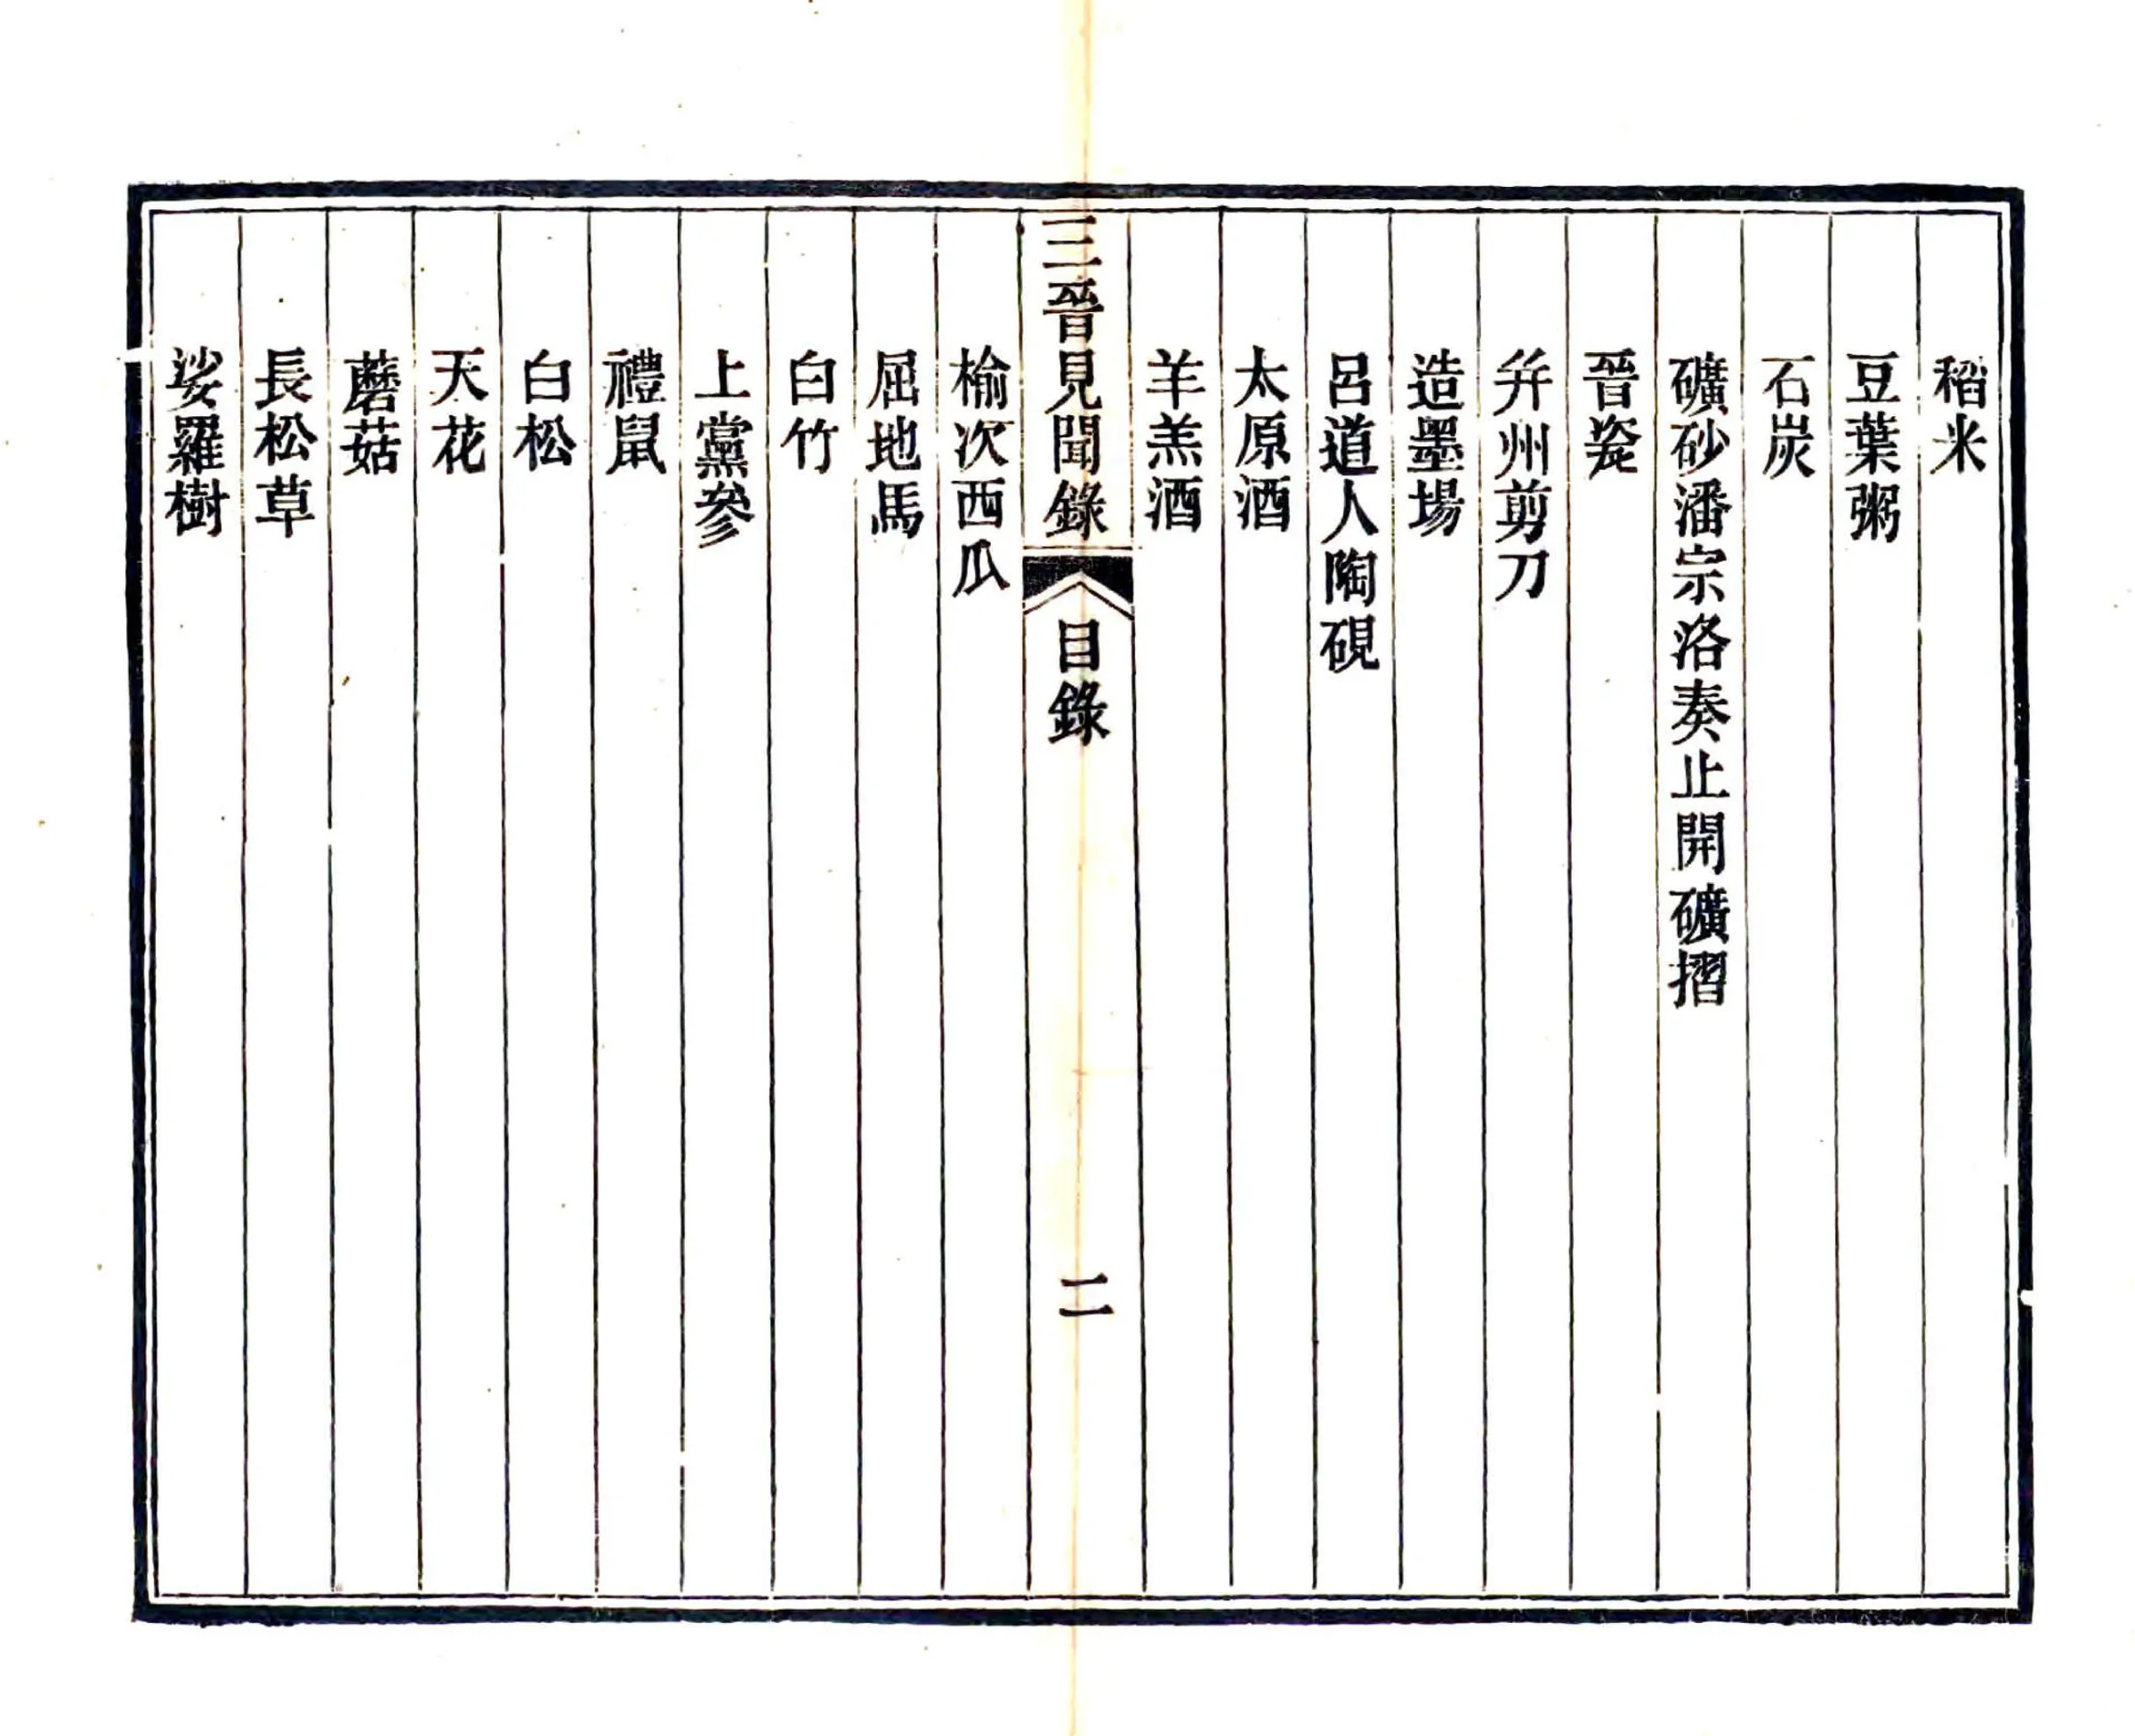 稻米
豆葉粥
石炭
礦砂潘宗洛奏止開礦摺
晉瓷
幷州剪刀
造墨場
呂道人陶硯
太原酒
羊羔酒
三晉見聞錄 目錄 二
榆次西瓜
屈地馬
白竹
上黨參
禮鼠
白松
天花
蘑菇
長松草
娑羅樹